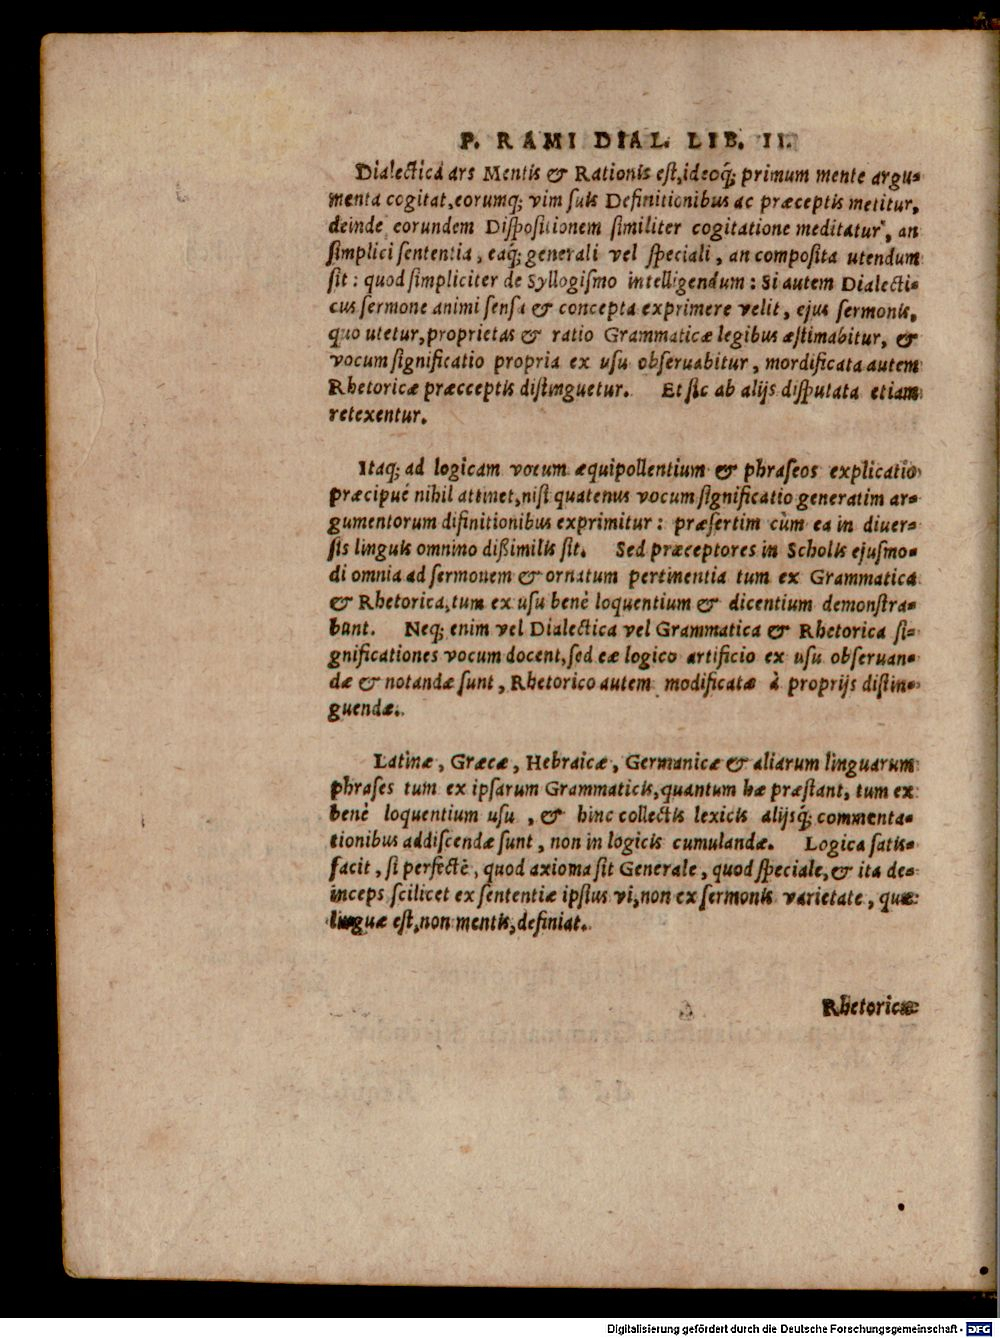 P. RAMI DIAL. LIB. II.
Dialecticà ars Mentis & Rationis est, ideoq́; primum mente argu-
menta cogitat, eorumq; vim suis Definitionibus ac præceptis metitur,
deinde eorundem Dispositionem similiter cogitatione meditatur, an
simplici sententia, eaq́; generali vel speciali, an composita utendum
sit: quod simpliciter de Syllogismo intelligendum: Si autem Dialecti-
cus sermone animi sensa & concepta exprimere velit, ejus sermonis,
quo utetur, proprietas & ratio Grammaticæ legibus æstimabitur, &
vocum significatio propria ex usu observabitur, mordificata autem
Rhetoricæ præcceptis distinguetur. Et sic ab alijs disputata etiam
retexentur.
Itaq; ad logicam vocum æquipollentium & phraseos explicatio
præcipué nihil attinet, nisi quatenus vocum significatio generatim ar-
gumentorum difinitionibus exprimitur: præsertim cùm ea in diver-
sis linguis omnino dißimilis sit. Sed præceptores in Scholis ejusmo-
di omnia ad sermonem & ornatum pertinentia tum ex Grammaticâ
& Rhetorica, tum ex usu benè loquentium & dicentium demonstra-
bunt. Neq; enim vel Dialectica vel Grammatica & Rhetorica si-
gnificationes vocum docent, sed eæ logico artificio ex usu observan-
dæ & notandæ sunt, Rhetorico autem modificatæ à proprijs distin-
guendæ.
Latinæ, Græcæ, Hebraicæ, Germanicæ & aliarum linguarum
phrases tum ex ipsarum Grammaticis, quantum hæ præstant, tum ex
benè loquentium usu, & hinc collectis lexicis alijsq́; commenta-
tionibus addiscendæ sunt, non in logicis cumulandæ. Logica satis-
facit, si perfectè, quod axioma sit Generale, quod speciale, & ita de-
inceps scilicet ex sententiæ ipsius vi, non ex sermonis varietate, quæ
linguæ est, non mentis, definiat.
Rhetoricæ
Digitalisierung gefördert durch die Deutsche Forschungsgemeinschaft - DFG